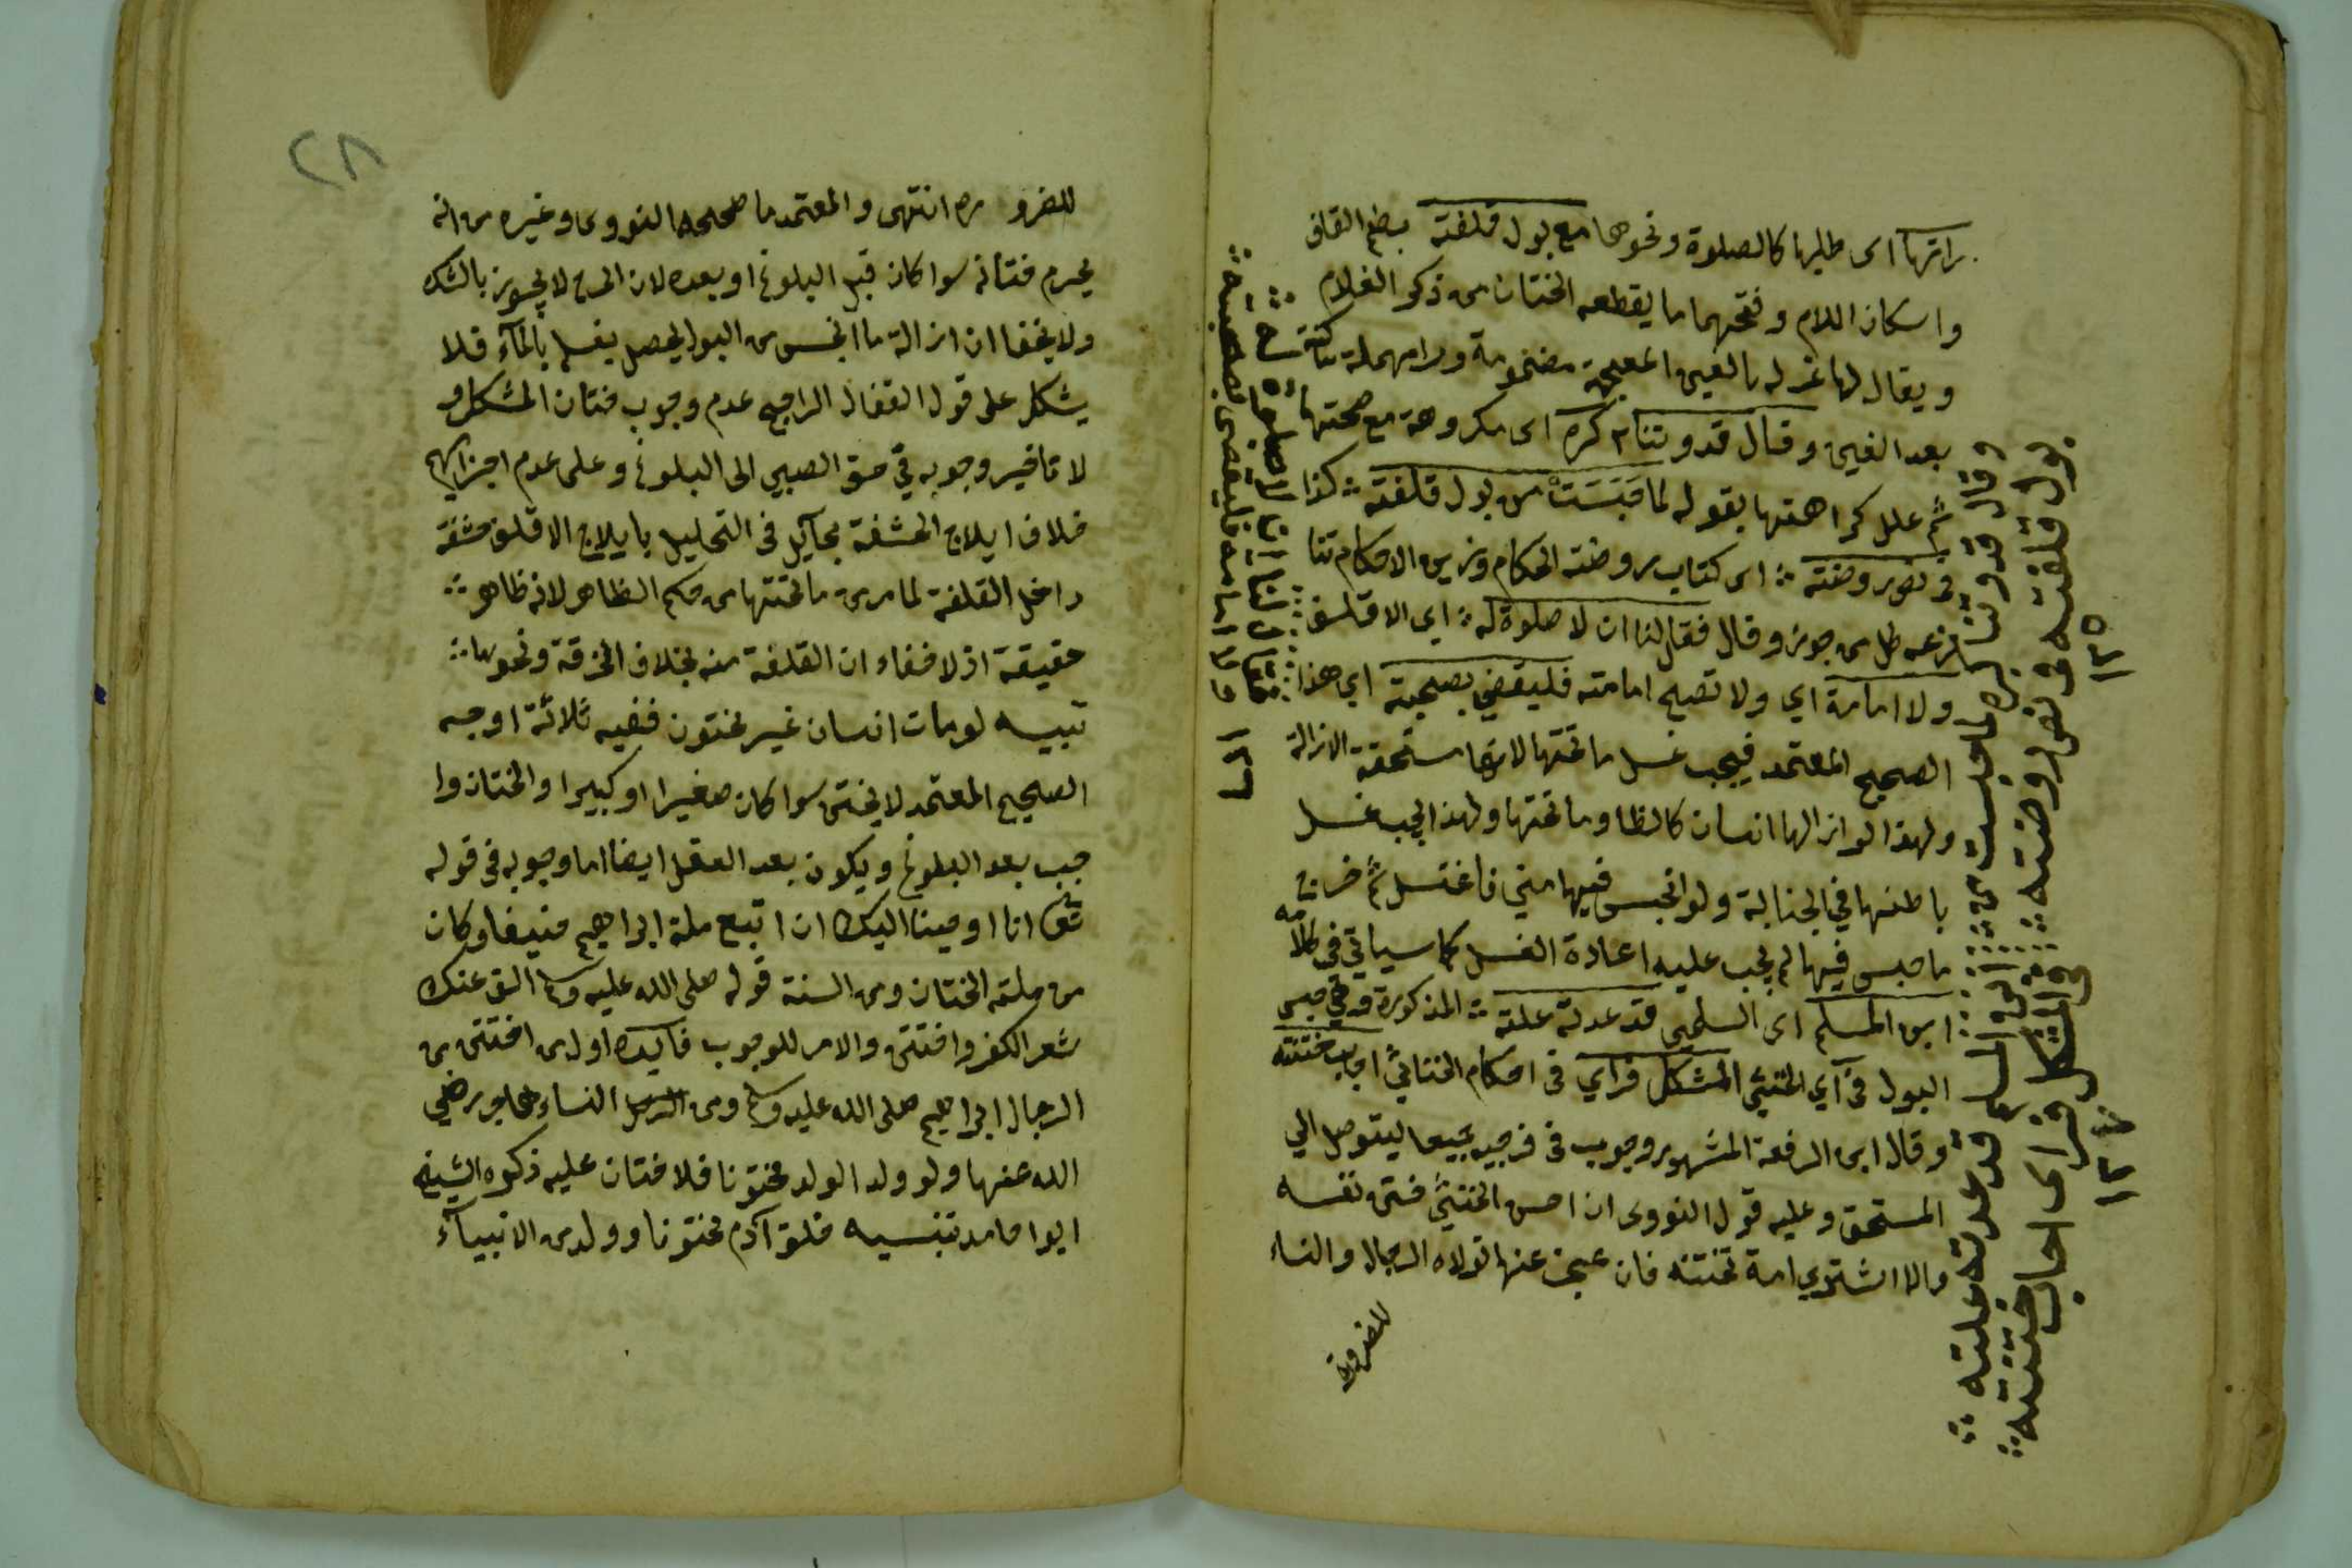 راتها اى طلبها كالصلوة ونحوها مع بول قلفته بضم القاف
واسكان اللام وفتحهما ما يقطعه الختان من ذكر الغلام
ويقال لها غرله بالغين المعجمة مضمومة وراء مهملة ساكنة
بعد الغين وقال قدوتنا كره اى مكروهة مع صحتها
ثم علل كراهتها بقوله لما حبست من بول قلفته كذا
فى نص روضته اى كتاب روضة الحكام وزين الاحكام
من جوز وقال فقال لنا ان لا صلوة له اى الاقلف
ولا امامة اي ولا تصح امامته فليقضي بصحبة اي هذا
الصحيح المعتمد فيجب غسل ما تحتها لانها مستحقة الازالة
ولهذا لو ازالها انسان كالظا وما تحتها ولهذا يجب غسل
باطنها في الجنابة ولو انحبس فيها مني فاغتسل ثم خرج
ما حبس فيها لم يجب عليه اعادة الغسل كما سياتي فى كلامه
ابن المسلم اى السلمي قد عدته علته المذكورة فى حبس
البول فى آي الخنثى المشكل فراي فى احكام الخناثى اجاب ختنته
وقال ابن الرفعة المشهور وجوب فى فرجيه جميعا ليتوصل الي
المستحق وعليه قول النووى ان احسن الخنثى ختن نفسه
والا اشتري امة تختنه فان عجز عنها تولاه الرجال والنساء
للضرورة
وقال قدوتنا كره لما حبست من
بول قلفته فى نص روضته
١٣٥
ابن المسلم قد عدته علته
فى المشكل فراى اجاب ختنته
١٣٧
١٣٦
٢٨
للضرورة انتهى والمعتمد ما صححه النووى وغيره من انه
يحرم ختانه سوا كان قبل البلوغ او بعده لان الجرح لا يجوز بالشك
ولا يخفا ان ازالة ما انحبس من البول يحصل بغسله بالمآء فلا
يشكل على قول القفال الراجح عدم وجوب ختان المشكل و
لا تاخير وجوبه فى حق الصبي الى البلوغ وعلى عدم اجزايهم
خلاف ايلاج الحشفة بحآيل فى التحليل بايلاج الاقلف حشفة
داخل القلفة لما مر من ما تحتها من حكم الظاهر لانه ظاهر
حقيقة اذ لا خفاء ان القلفة منه بخلاف الخرقة ونحوها
تنبيه لو مات انسان غير مختون ففيه ثلاثة اوجه
الصحيح المعتمد لا يختن سوا كان صغيرا او كبيرا والختان وا
جب بعد البلوغ ويكون بعد العقل ايضا اما وجوبه فى قوله
تعالى انا اوحينا اليك ان اتبع ملة ابراهيم حنيفا وكان
من ملته الختان ومن السنة قوله صلى الله عليه وسلم الق عنك
شعر الكفر واختتن والامر للوجوب فآيدة اول من اختتن من
الرجال ابراهيم صلى الله عليه وسلم ومن النساء هاجر رضي
الله عنها ولو ولد الولد مختونا فلا ختان عليه ذكره الشيخ
ابوا حامد تنبيه خلق آدم مختونا وولد من الانبيآء